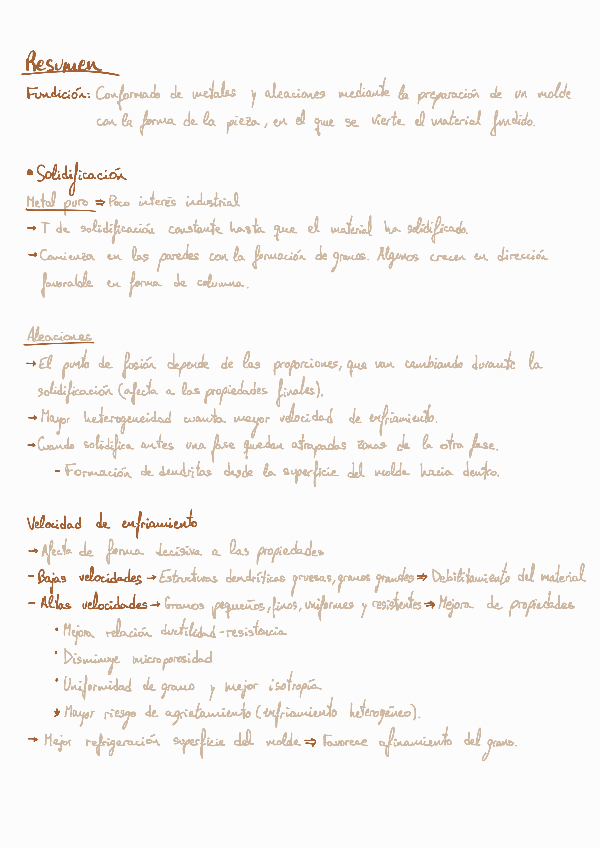 Resumen
Fundición: Conformado de metales y aleaciones mediante la preparación de un molde
con la forma de la pieza, en el que se vierte el material fundido.
• Solidificación
Metal puro ⇒ Poco interés industrial
→ T de solidificación constante hasta que el material ha solidificado.
→ Comienza en las paredes con la formación de granos. Algunos crecen en dirección
favorable en forma de columna.
Aleaciones
→ El punto de fusión depende de las proporciones, que van cambiando durante la
solidificación (afecta a las propiedades finales).
→ Mayor heterogeneidad cuanta mayor velocidad de enfriamiento.
→ Cuando solidifica antes una fase quedan atrapadas zonas de la otra fase.
- Formación de dendritas desde la superficie del molde hacia dentro.
Velocidad de enfriamiento
→ Afecta de forma decisiva a las propiedades
- Bajas velocidades → Estructuras dendríticas gruesas, granos grandes ⇒ Debilitamiento del material
- Altas velocidades → Granos pequeños, finos, uniformes y resistentes ⇒ Mejora de propiedades
• Mejora relación ductilidad-resistencia
• Disminuye microporosidad
• Uniformidad de grano y mejor isotropía
* Mayor riesgo de agrietamiento (enfriamiento heterogéneo).
→ Mejor refrigeración superficie del molde ⇒ Favorece afinamiento del grano.